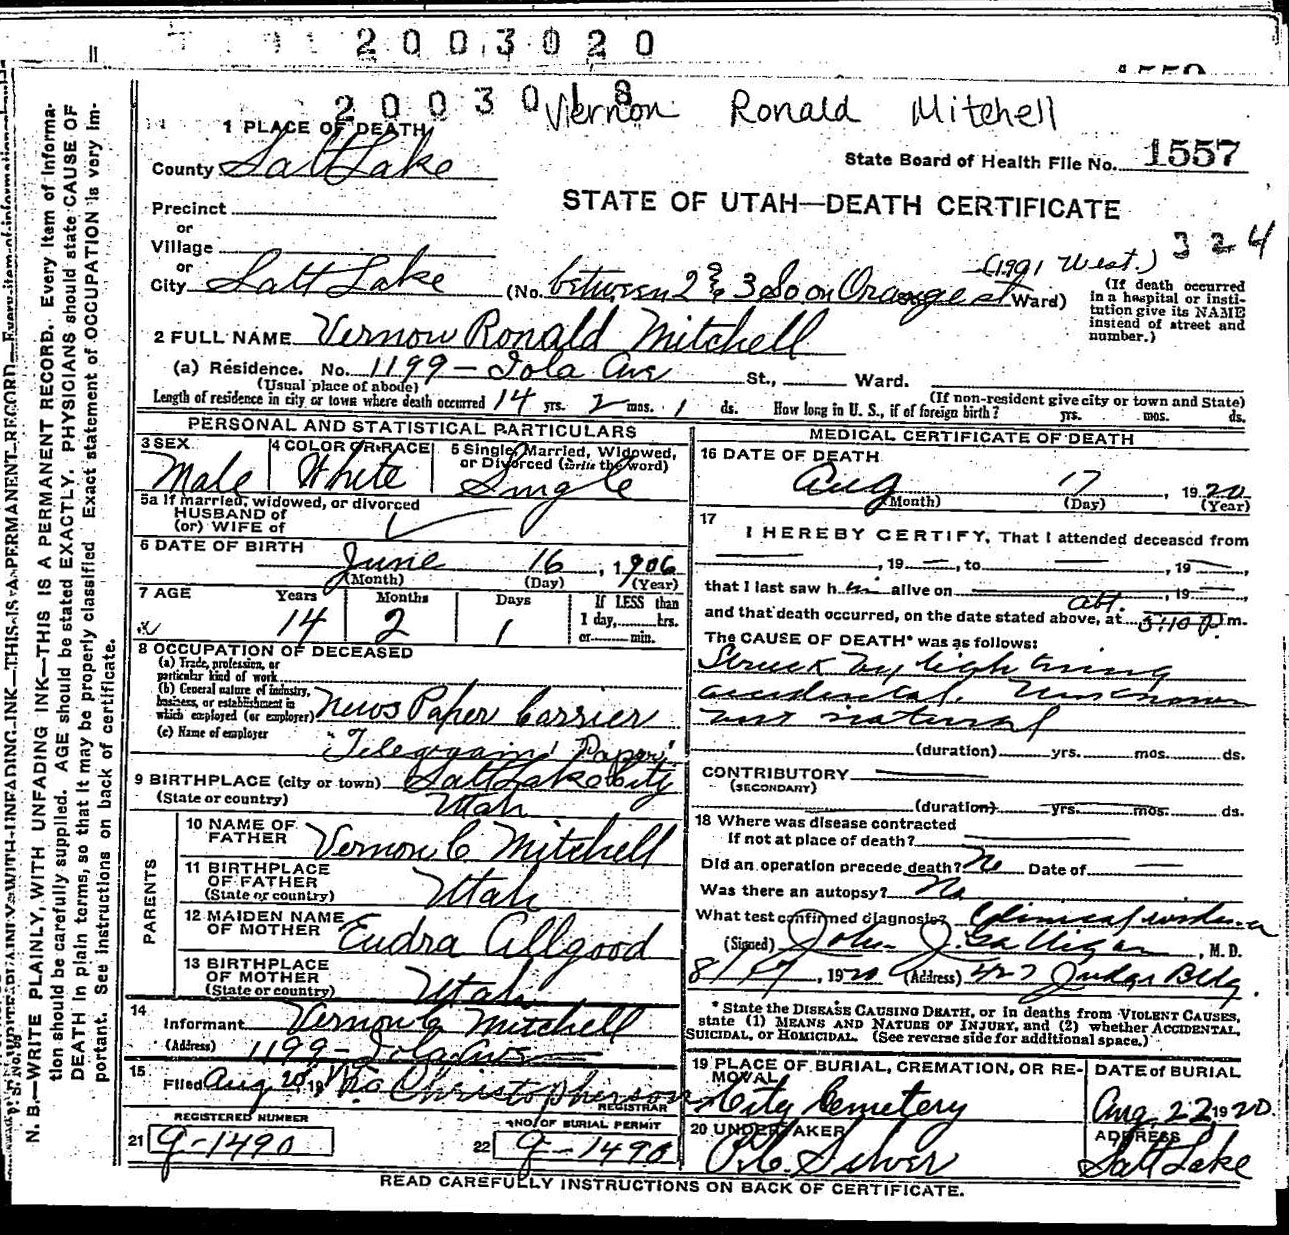 2003020
2003018
Vernon Ronald Mitchell
1 PLACE OF DEATH
County Salt Lake
State Board of Health File No. 1557
Precinct
STATE OF UTAH—DEATH CERTIFICATE
or
Village
324
or
(1991 West.)
City Salt Lake (No. between 2 & 3 So on Orange st Ward)
(If death occurred in a hospital or institution give its NAME instead of street and number.)
2 FULL NAME Vernon Ronald Mitchell
(a) Residence. No. 1199 - Iola Ave St., Ward.
(Usual place of abode) (If non-resident give city or town and State)
Length of residence in city or town where death occurred 14 yrs. 2 mos. 1 ds. How long in U. S., if of foreign birth? yrs. mos. ds.
PERSONAL AND STATISTICAL PARTICULARS
3 SEX Male
4 COLOR OR RACE White
5 Single, Married, Widowed, or Divorced (write the word) Single
5a If married, widowed, or divorced
HUSBAND of
(or) WIFE of
6 DATE OF BIRTH
June 16, 1906
(Month) (Day) (Year)
7 AGE Years Months Days If LESS than
14 2 1 1 day, hrs.
or min.
8 OCCUPATION OF DECEASED
(a) Trade, profession, or particular kind of work
(b) General nature of industry, business, or establishment in which employed (or employer) News Paper Carrier
(c) Name of employer "Telegram" Paper
9 BIRTHPLACE (city or town) Salt Lake City
(State or country) Utah
PARENTS
10 NAME OF FATHER Vernon C Mitchell
11 BIRTHPLACE OF FATHER (State or country) Utah
12 MAIDEN NAME OF MOTHER Eudra Allgood
13 BIRTHPLACE OF MOTHER (State or country) Utah
14 Informant Vernon C Mitchell
(Address) 1199 - Iola Ave
15 Filed Aug 20 19 Christopherson
REGISTRAR
REGISTERED NUMBER
21 9-1490
NO. OF BURIAL PERMIT
22 9-1490
MEDICAL CERTIFICATE OF DEATH
16 DATE OF DEATH
Aug 17, 1920
(Month) (Day) (Year)
17 I HEREBY CERTIFY, That I attended deceased from
, 19 , to , 19 ,
that I last saw him alive on , 19 ,
and that death occurred, on the date stated above, at abt. 5:10 P. m.
The CAUSE OF DEATH* was as follows:
Struck by lightning
accidental.
not natural
(duration) yrs. mos. ds.
CONTRIBUTORY
(SECONDARY)
(duration) yrs. mos. ds.
18 Where was disease contracted
If not at place of death?
Did an operation precede death? No Date of
Was there an autopsy? No
What test confirmed diagnosis? Clinical evidence
(Signed) John J. Galligan, M. D.
, 1920 (Address) 427 Judge Bldg.
*State the DISEASE CAUSING DEATH, or in deaths from VIOLENT CAUSES,
state (1) MEANS AND NATURE OF INJURY, and (2) whether ACCIDENTAL,
SUICIDAL, or HOMICIDAL. (See reverse side for additional space.)
19 PLACE OF BURIAL, CREMATION, OR REMOVAL
City Cemetery
DATE of BURIAL
Aug. 22 1920.
20 UNDERTAKER
Silver
ADDRESS
Salt Lake
READ CAREFULLY INSTRUCTIONS ON BACK OF CERTIFICATE.
N. B.—WRITE PLAINLY, WITH UNFADING INK—THIS IS A PERMANENT RECORD. Every item of information
should be carefully supplied. AGE should be stated EXACTLY. PHYSICIANS should state CAUSE OF
DEATH in plain terms, so that it may be properly classified. Exact statement of OCCUPATION is very important.
See instructions on back of certificate.